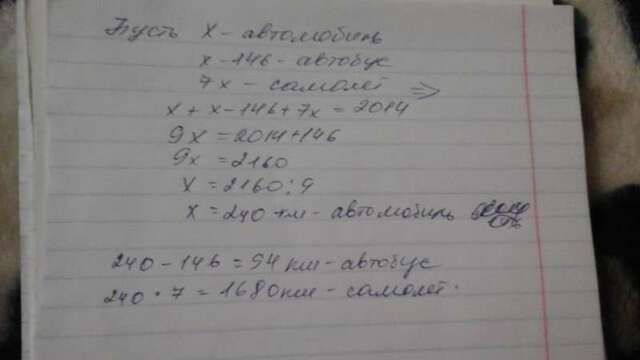 Пусть х - автомобиль
х - 146 - автобус
7х - самолёт ⇒
х + х - 146 + 7х = 2014
9х = 2014 + 146
9х = 2160
х = 2160 : 9
х = 240 км - автомобиль
240 - 146 = 94 км - автобус
240 · 7 = 1680 км - самолёт.